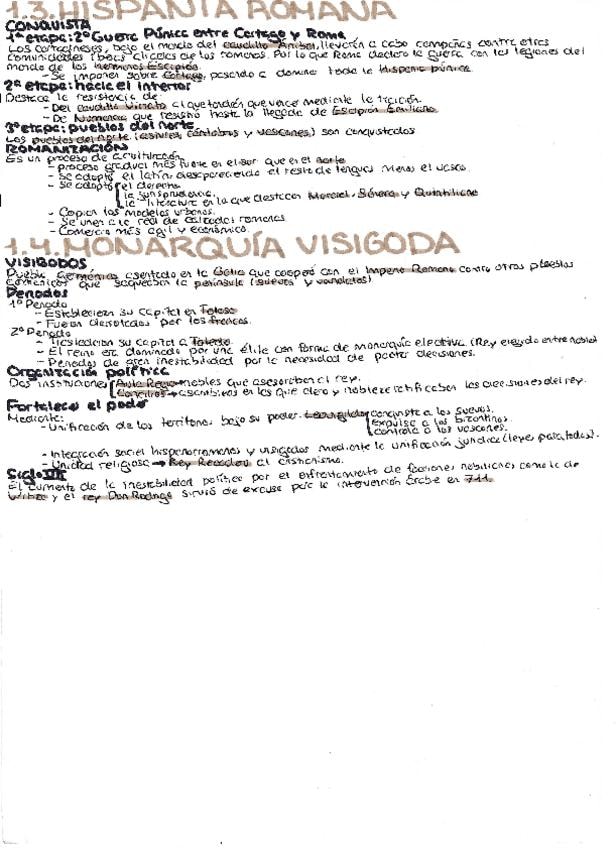 1.3. HISPANIA ROMANA
CONQUISTA
1ª etapa: 2ª Guerra Púnica entre Cartago y Roma
Los cartagineses, bajo el mando del caudillo Aníbal, llevarán a cabo campañas contra otras
comunidades íberas aliadas de los romanos. Por lo que Roma declaró la guerra con las legiones del
mando de los hermanos Escipión.
- Se imponen sobre Cartago, pasando a dominar toda la Hispania púnica.
2ª etapa: hacia el interior
Destaca la resistencia de:
- Del caudillo Viriato al que tendrán que vencer mediante la traición.
- De Numancia que resistió hasta la llegada de Escipión Emiliano.
3ª etapa: pueblos del norte
Los pueblos del norte (astures, cántabros y vascones) son conquistados
ROMANIZACIÓN
Es un proceso de aculturación
- proceso gradual más fuerte en el sur que en el norte
- Se adoptó el latín desapareciendo el resto de lenguas menos el vasco.
- Se adoptó el derecho
la jurisprudencia.
la literatura en la que destacan Marcial, Séneca y Quintiliano
- Copian los modelos urbanos.
- Se unen a la red de calzadas romanas.
- Comercio más ágil y económico.
1.4. MONARQUÍA VISIGODA
VISIGODOS
Pueblo Germánico asentado en la Galia que cooperó con el Imperio Romano contra otros pueblos
germánicos que saqueaban la península (suevos y vándalos)
Periodos
1º Periodo
- Establecieron su capital en Tolosa
- Fueron derrotados por los francos.
2º Periodo
- Trasladaron su capital a Toledo.
- El reino era dominado por una élite con forma de monarquía electiva (Rey elegido entre nobles)
- Periodos de gran inestabilidad por la necesidad de pactar decisiones.
Organización política
Dos instituciones Aula Regia → nobles que asesoraban al rey.
Concilios → asambleas en las que clero y nobleza ratificaban las decisiones del rey.
Fortalece el poder
Mediante:
- Unificación de los territorios bajo su poder. Leovigildo conquista a los suevos.
expulsa a los bizantinos.
controla a los vascones.
- Integración social hispanorromanos y visigodos mediante la unificación jurídica (leyes para todos).
- Unidad religiosa → Rey Recaredo al cristianismo.
Siglo VII
El aumento de la inestabilidad política por el enfrentamiento de facciones nobiliarias como la de
Witiza y el rey Don Rodrigo sirvió de excusa para la intervención árabe en 711.